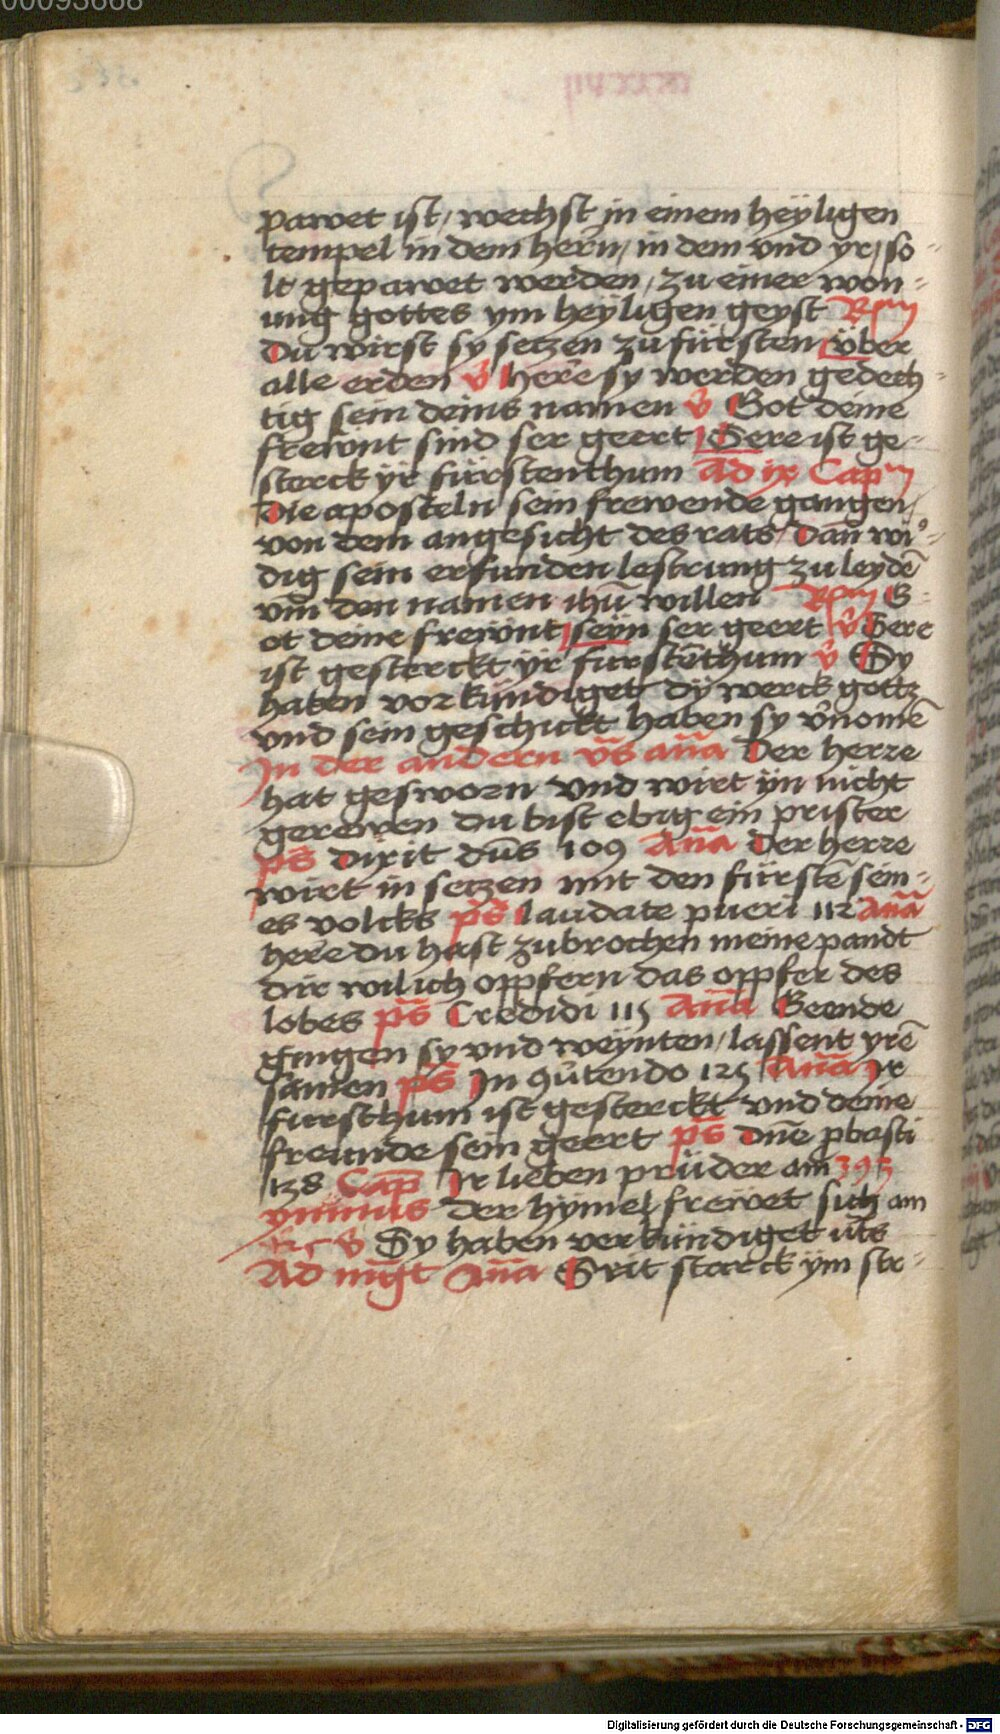 00093668
pawet ist, wechst in einem heyligen
tempel in dem hern, in dem vnd yr, so-
lt gepawet werden, zu einer won-
ung gottes ym heyligen geyst Rpm
Du wirst sy setzen zu fürsten, vber
alle erden v̊ here sy werden gedech-
tig sein deins namen v̊ Got deine
frewnt sind ser geert Sere ist ge-
sterck yr fürstenthum Ad ix Capm
Die aposteln sein frewende gangen,
von dem angesicht des rats, Dan̄ wi-
dig sein erfunden lestrung zu leydē
vm̄ den namen ihū willen Rpm G-
ot deine frewnt, seyn ser geert v̊ Sere
ist gesterckt yr furstēthum v̊ Sy
haben vorkündiget dy werck gottz
vnd sein geschickt haben sy v̊nomē
In der andern v̄s an̄a Der herre
hat gesworn vnd wirt yn nicht
gerewen du bist ebig ein prister
ps̄ Dixit dūs 109 An̄a Der herre
wirt in setzen mit den fürstē sein-
es volcks ps̄ Laudate pueri 112 An̄a
here du hast zubrochen meine pandt
dir wil ich oppfern das oppfer des
lobes ps̄ Credidi 115 An̄a Geende
gingen sy vnd weynten, lassent yrē
samen ps̄ In 9u̇tendo 125 An̄a Ir
fursthum ist gesterckt vnd deine
freunde sein geert ps̄ Dn̄e pbasti
138 Cap̄ Ir lieben prüder am 393
ymnus der hymel frewet sich am
v̊ Sy haben verkündiget ut̄s
Ad mgt̄ An̄a Seit starck ym str-
Digitalisierung gefördert durch die Deutsche Forschungsgemeinschaft - DFG